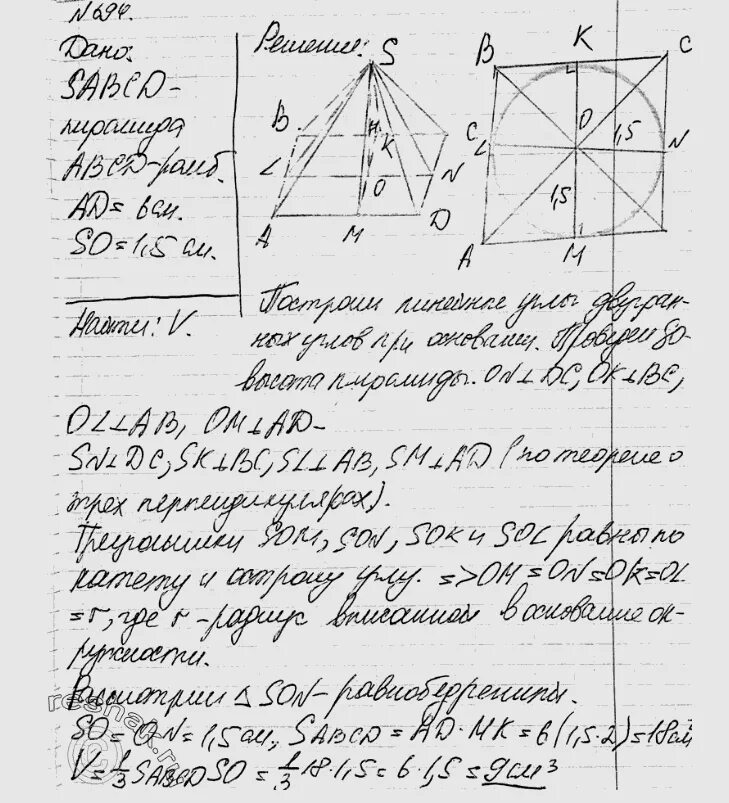 №694.
Дано:
SABCD-
пирамида
ABCD-ромб.
AD= 6см.
SO=1,5 см.
Найти: V.
Решение:
S
B
H
K
L
O
N
A
M
D
B
K
C
C
L
O
1,5
N
1,5
A
M
Построим линейные углы двугран-
ных углов при основании. Проведем SO-
высота пирамиды. ON⊥DC, OK⊥BC,
OL⊥AB, OM⊥AD-
SN⊥DC, SK⊥BC, SL⊥AB, SM⊥AD (по теореме о
трех перпендикулярах).
Треугольники SOM, SON, SOK и SOL равны по
катету и острому углу. =>OM=ON=OK=OL
=r, где r-радиус вписанной в основание ок-
ружности.
Рассмотрим △SON-равнобедренный.
SO=ON=1,5см, SABCD=AD·MK=6(1,5·2)=18см²
V=1/3 SABCD SO=1/3 18·1,5=6·1,5=9см³
reshak.ru